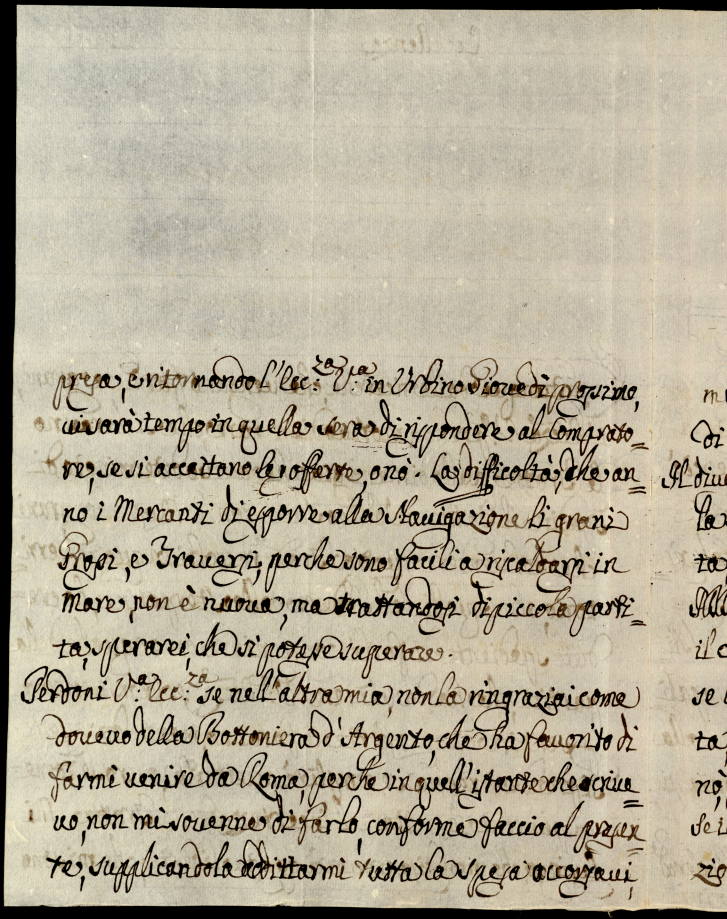 presa, e ritornando l'Ecc:za V:a in Urbino Giovedì prossimo,
vi sarà tempo in quella sera di rispondere al Comprato=
re, se si accettano le offerte, o nò. La difficoltà, che an=
no i Mercanti di esporre alla Navigazione li grani
Grossi, e Traversi, perche sono facili a riscaldarsi in
Mare, non è nuova, ma trattandosi di piccola parti=
ta, sperarei, che si potesse superare.
Perdoni V:a Ecc:za se nell'altra mia, non la ringraziai come
dovevo della Bottoniera d'Argento, che ha favorito di
farmi venire da Roma, perche in quell'istante che scrive=
vo, non mi sovenne di farlo, conforme faccio al presen=
te, supplicandola addittarmi tutta la spesa accorsavi,
di
la
ta
il c
ta
nò,
se i
zio